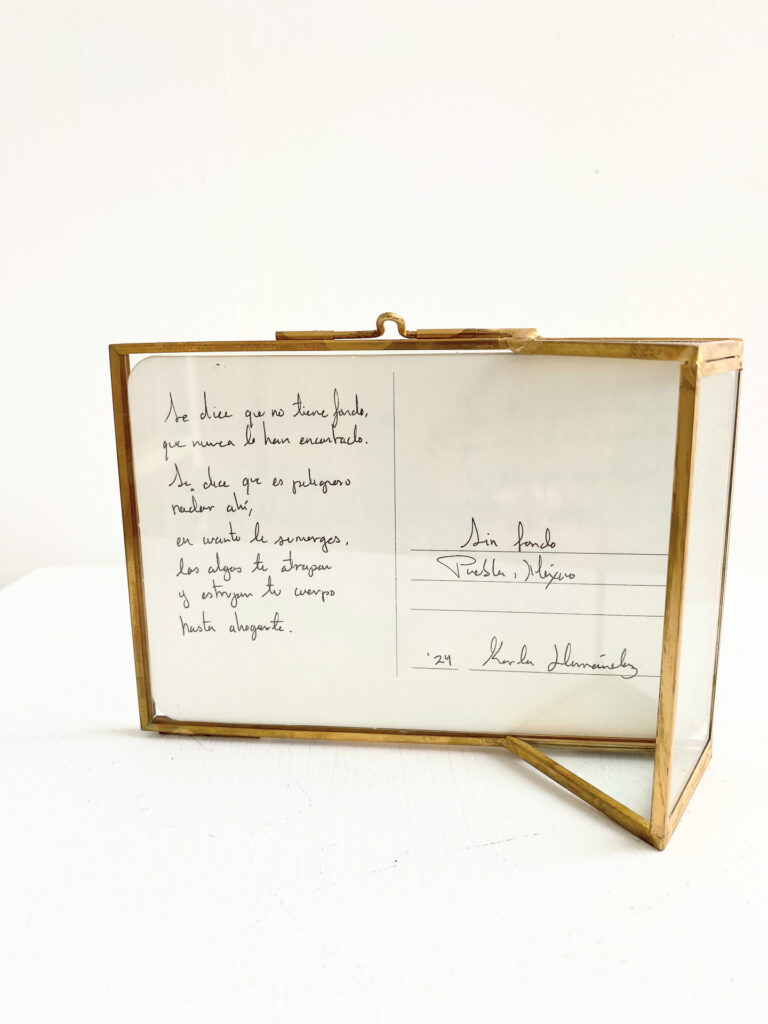 Se dice que no tiene fondo,
que nunca lo han encontrado.
Se dice que es peligroso
nadar ahí,
en cuanto te sumerges,
las algas te atrapan
y estrujan tu cuerpo
hasta ahogarte.
Sin fondo
Puebla, México
'24 Karla Hernández